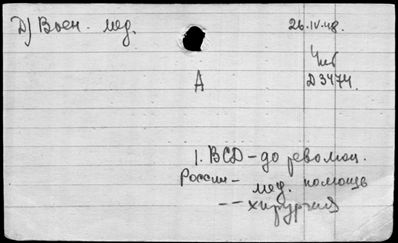 Д) Воен. мед. 26.IV.48.
Чит
A Д3474.
1. ВСД – до революц.
России –
мед. помощь
– – хирургия